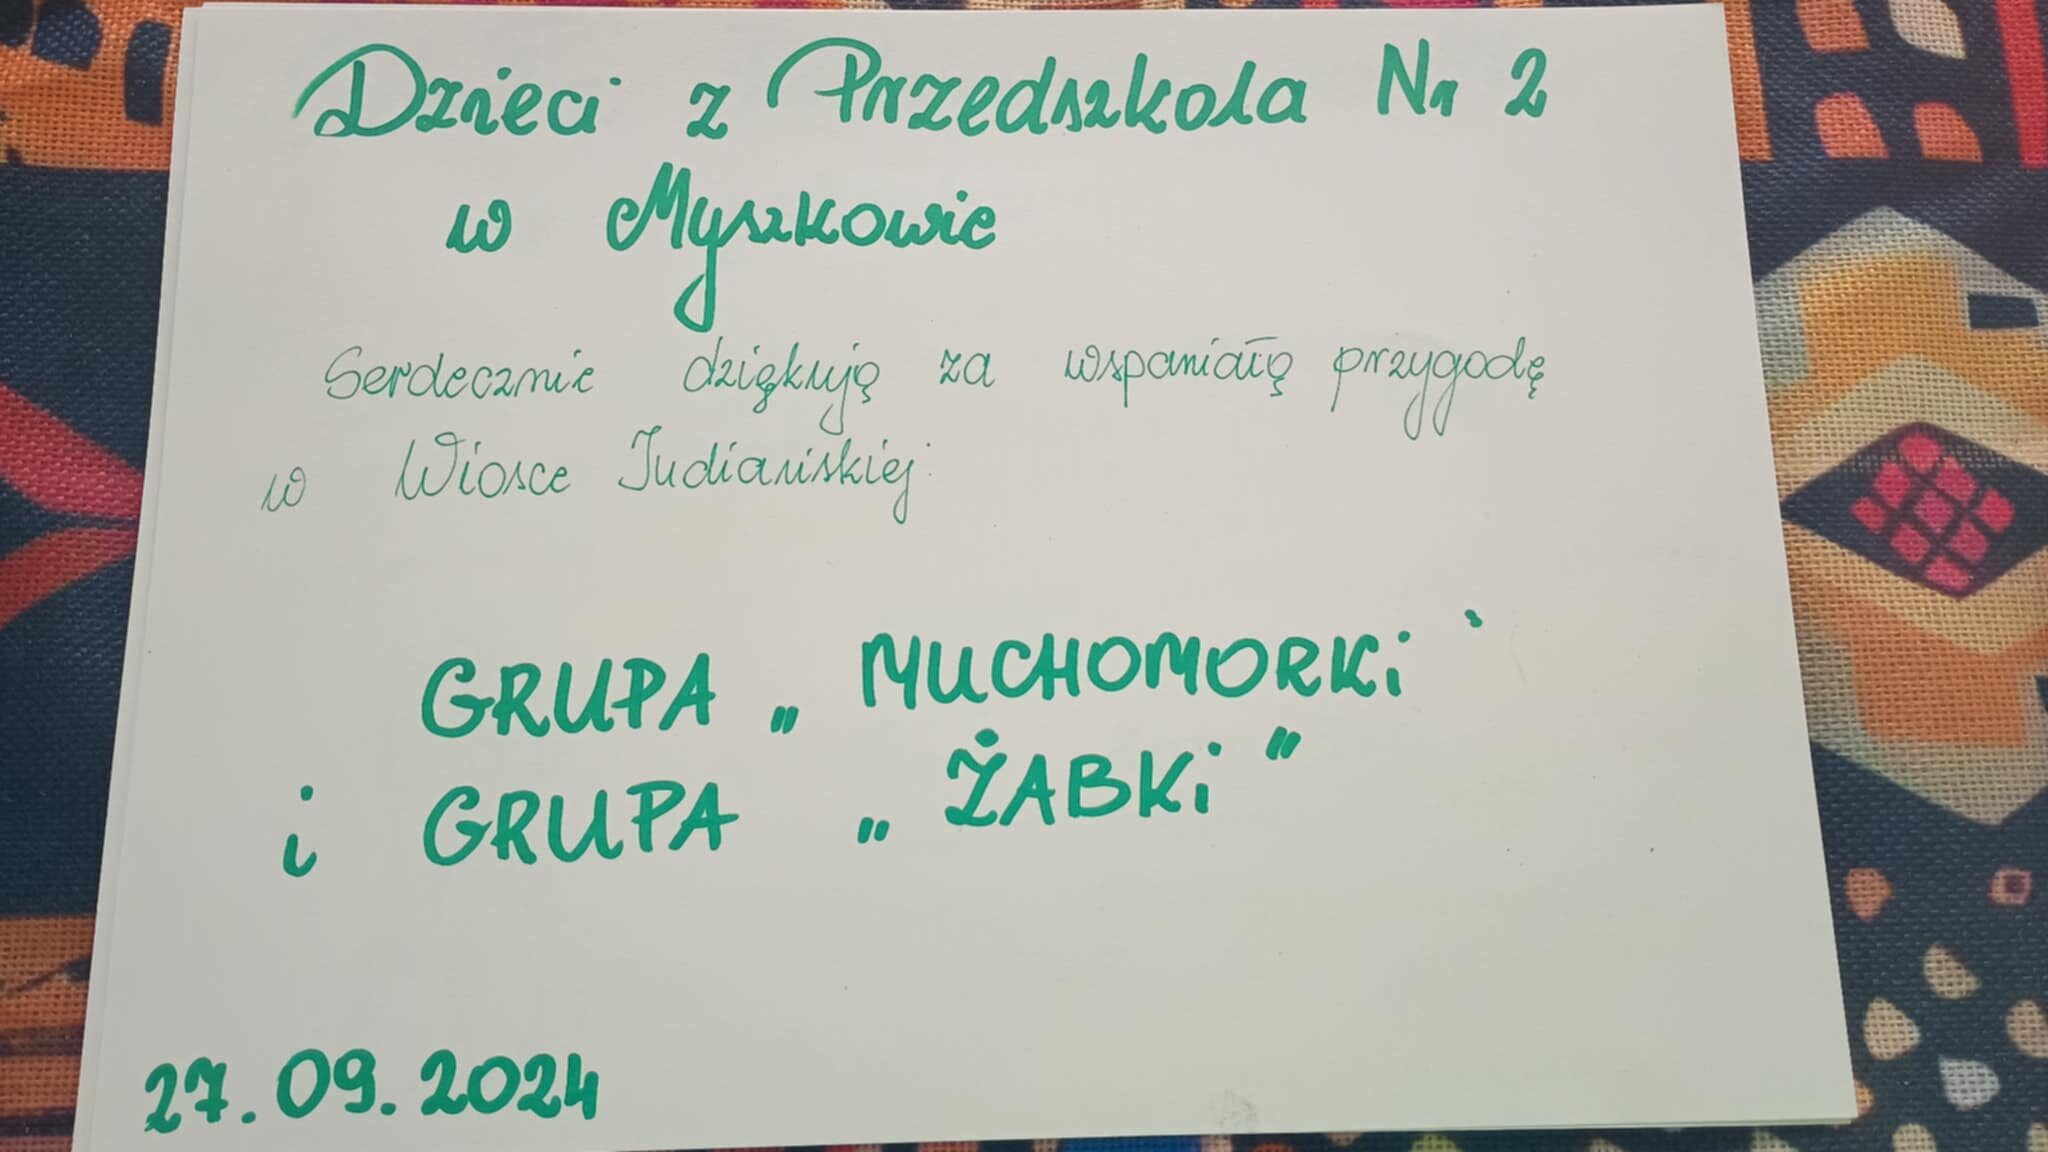 Dzieci z Przedszkola Nr 2
w Myszkowie
Serdecznie dziękują za wspaniałą przygodę
w Wiosce Indiańskiej.
GRUPA „MUCHOMORKi"
i GRUPA „ŻABKi"
27.09.2024